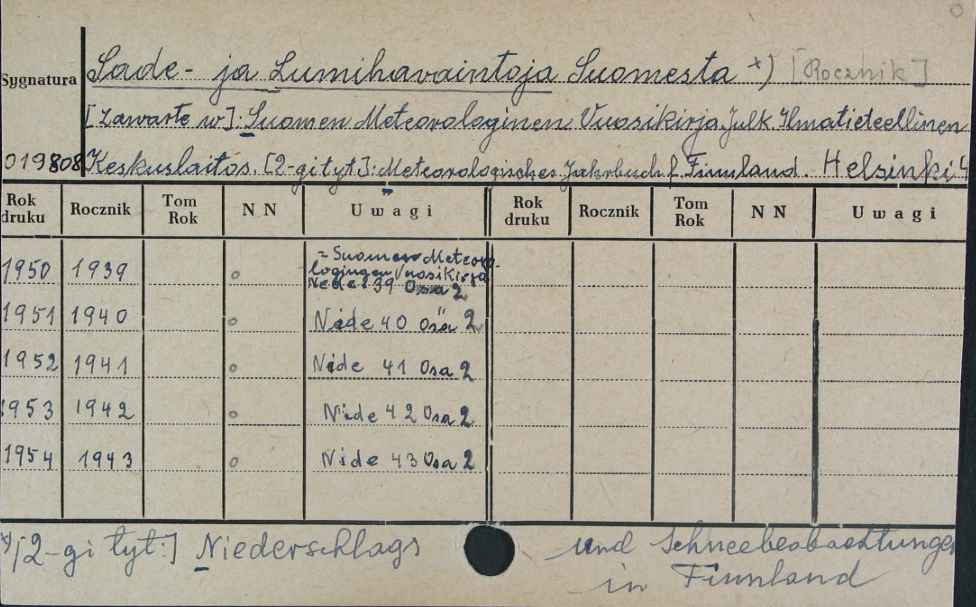 Sygnatura Sade- ja Lumihavaintoja Suomesta *) [Rocznik]
[zawarte w]: Suomen Meteorologinen Vuosikirja Julk. Ilmatieteellinen
019808 Keskuslaitos. [2-gi tyt]: Meteorologisches Jahrbuch f. Finnland. Helsinki 4
Rok druku Rocznik Tom Rok NN Uwagi Rok druku Rocznik Tom Rok NN Uwagi
1950 1939 o = Suomen Meteoro-
logingen Vuosikirja
Nide 39 Osa 2
1951 1940 o Nide 40 Osa 2
1952 1941 o Nide 41 Osa 2
1953 1942 o Nide 42 Osa 2
1954 1943 o Nide 43 Osa 2
*) [2-gi tyt:] Niederschlags und Schneebeobachtungen
in Finnland